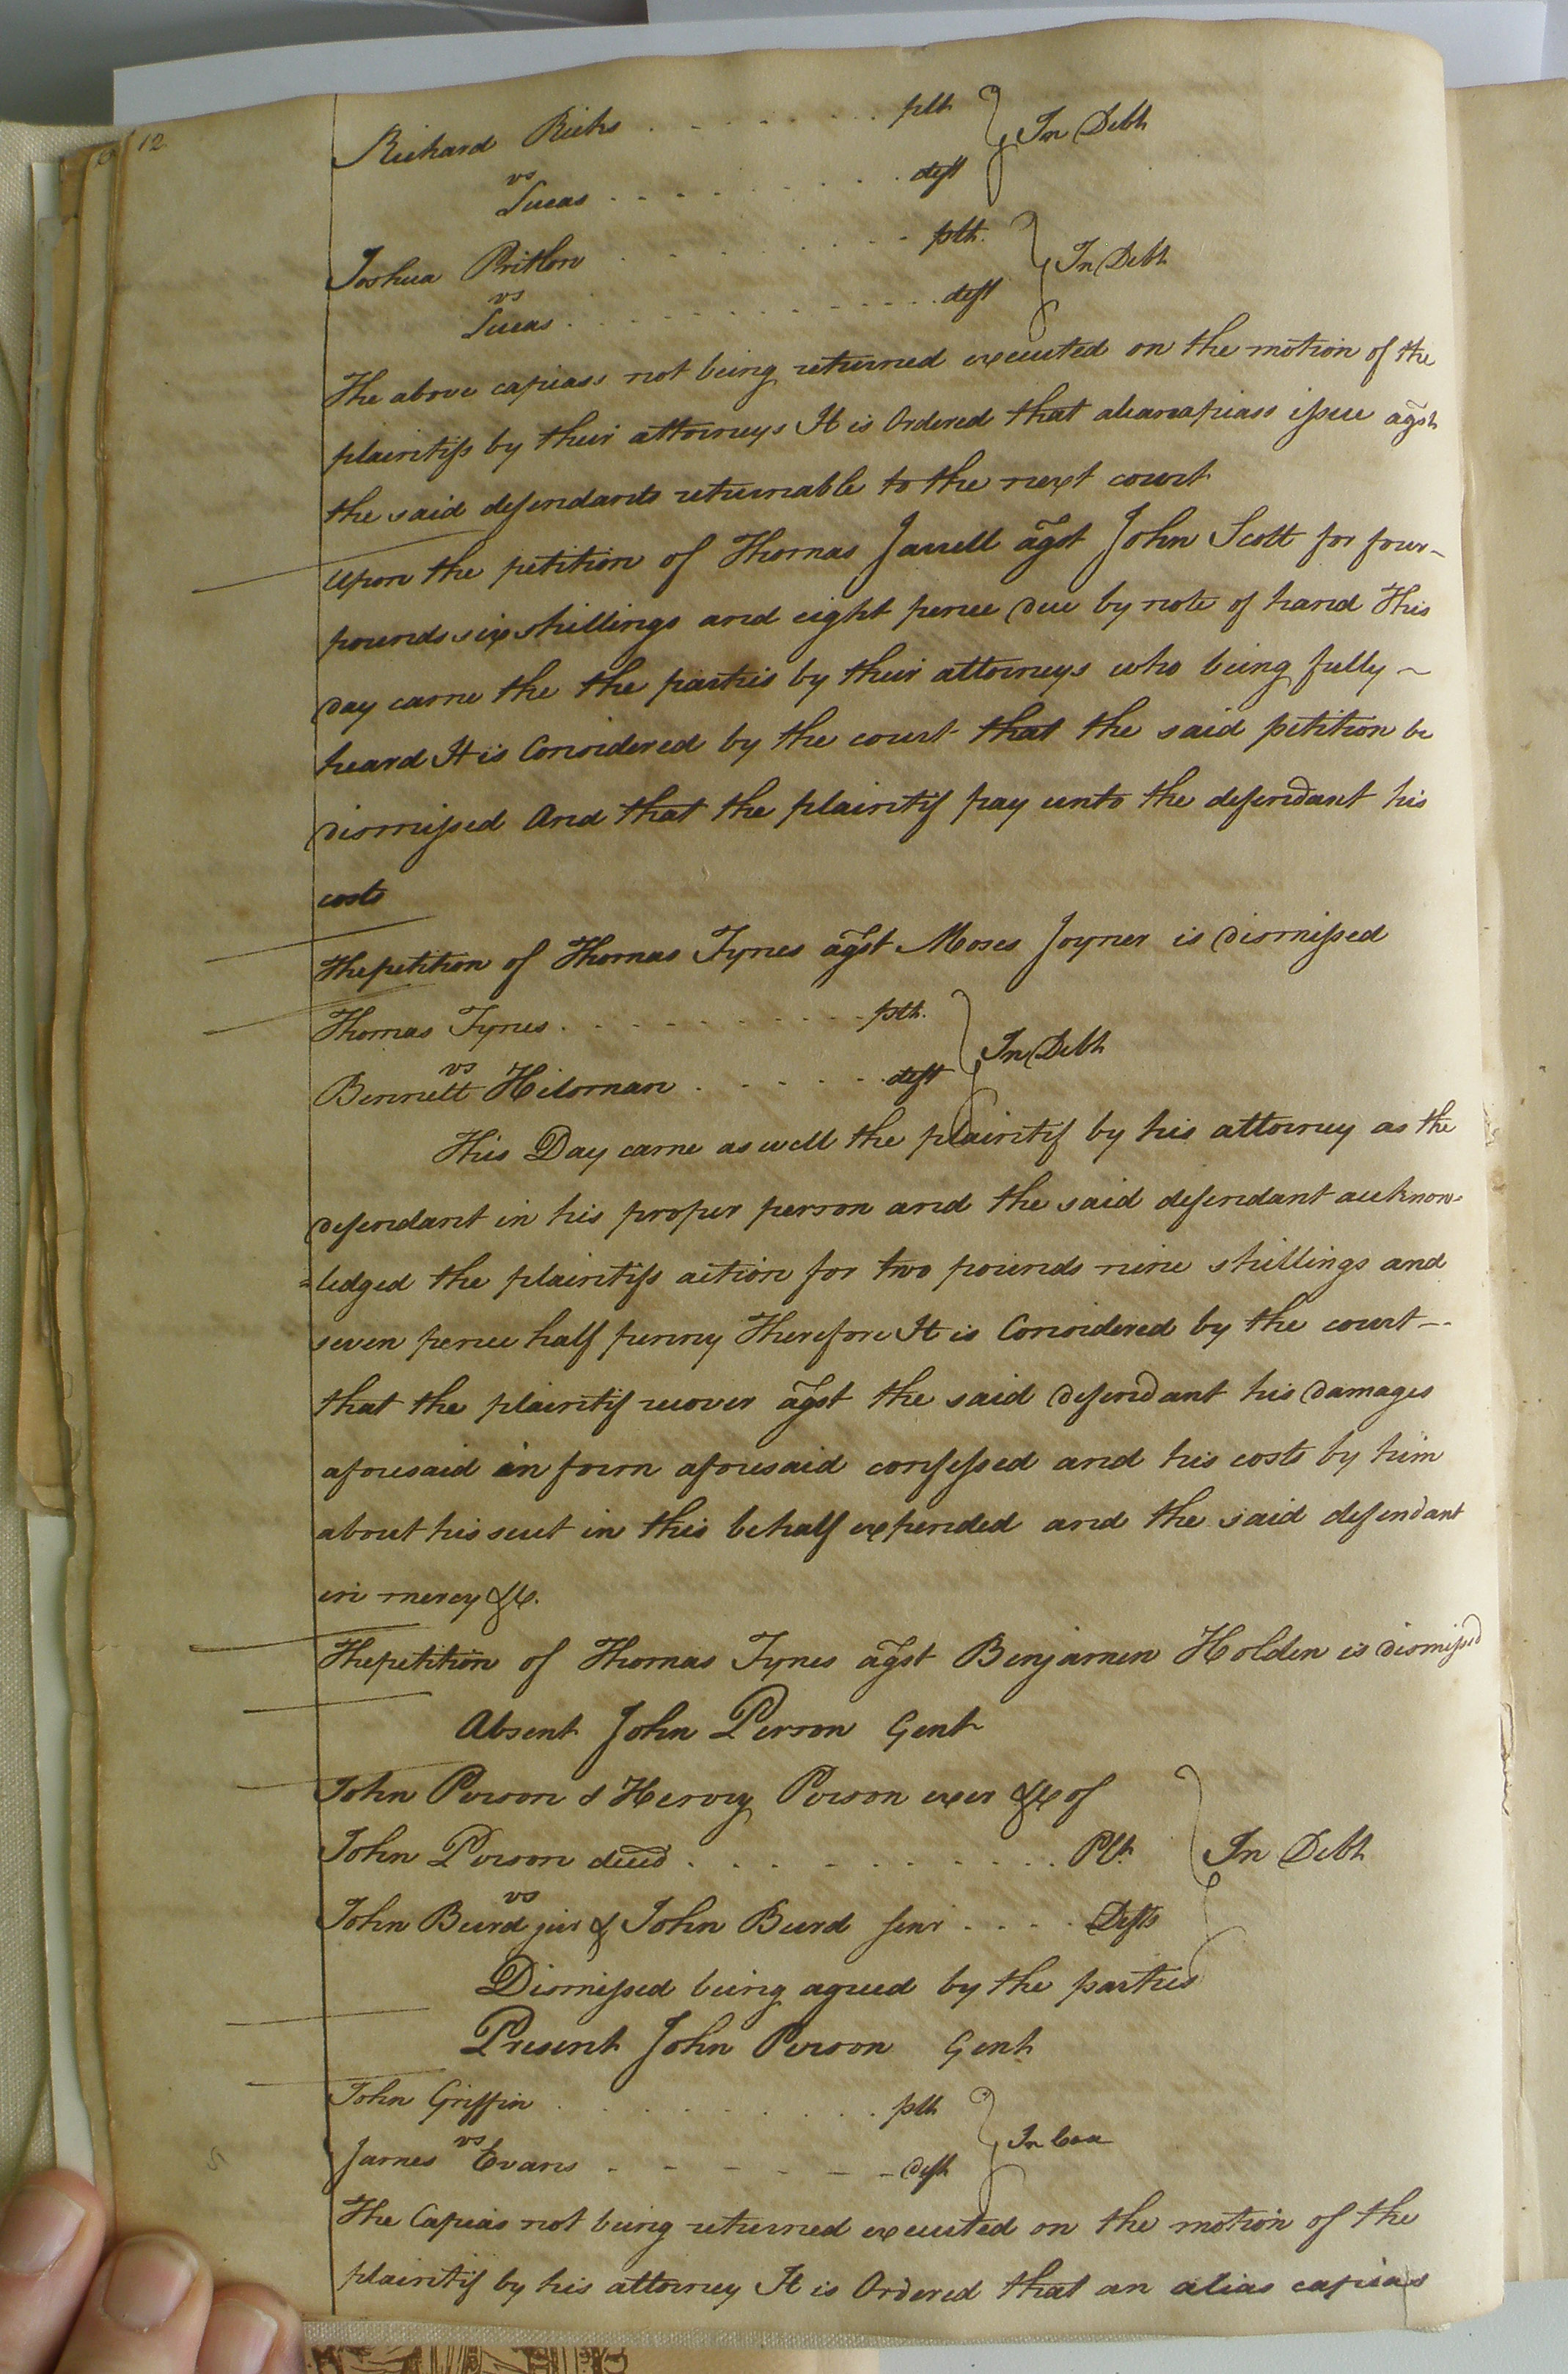 12
Richard Ricks . . . . . . . . . plt } In Debt
vs
Lucas . . . . . . . . . deft
Joshua Pritlow . . . . . . . plt. } In Debt
vs
Lucas . . . . . . . . . . . . deft
The above capiass not being returned executed on the motion of the
plaintifs by their attorneys It is Ordered that aliascapiass issue agst
the said defendants returnable to the next court
Upon the petition of Thomas Jarrell agst John Scott for four-
pounds six shillings and eight pence due by note of hand This
day came the the parties by their attorneys who being fully ~
heard It is Considered by the court that the said petition be
dismissed And that the plaintif pay unto the defendant his
costs
The petition of Thomas Tynes agst Moses Joyner is dismissed
Thomas Tynes . . . . . . . . . . plt. } In Debt
vs
Bennett Hilsman . . . . . . deft
This Day came as well the plaintif by his attorney as the
defendant in his proper person and the said defendant acknow-
=ledged the plaintifs action for two pounds nine shillings and
seven pence half penny Therefore It is Considered by the court --
that the plaintif recover agst the said defendant his damages
aforesaid in form aforesaid confessed and his costs by him
about his suit in this behalf expended and the said defendant
in mercy &c.
The petition of Thomas Tynes agst Benjamen Holden is dismissd
Absent John Person Gent
John Person & Henry Person exer &c of
John Person decd . . . . . . . . . . . Plt. } In Debt
vs
John Burd jur & John Burd senr . . . . Defts
Dismissed being agreed by the parties
Present John Person Gent
John Griffin . . . . . . . . . . plt } In Case
vs
James Evans - - - - - - - deft
The Capias not being returned executed on the motion of the
plaintif by his attorney It is Ordered that an alias capias